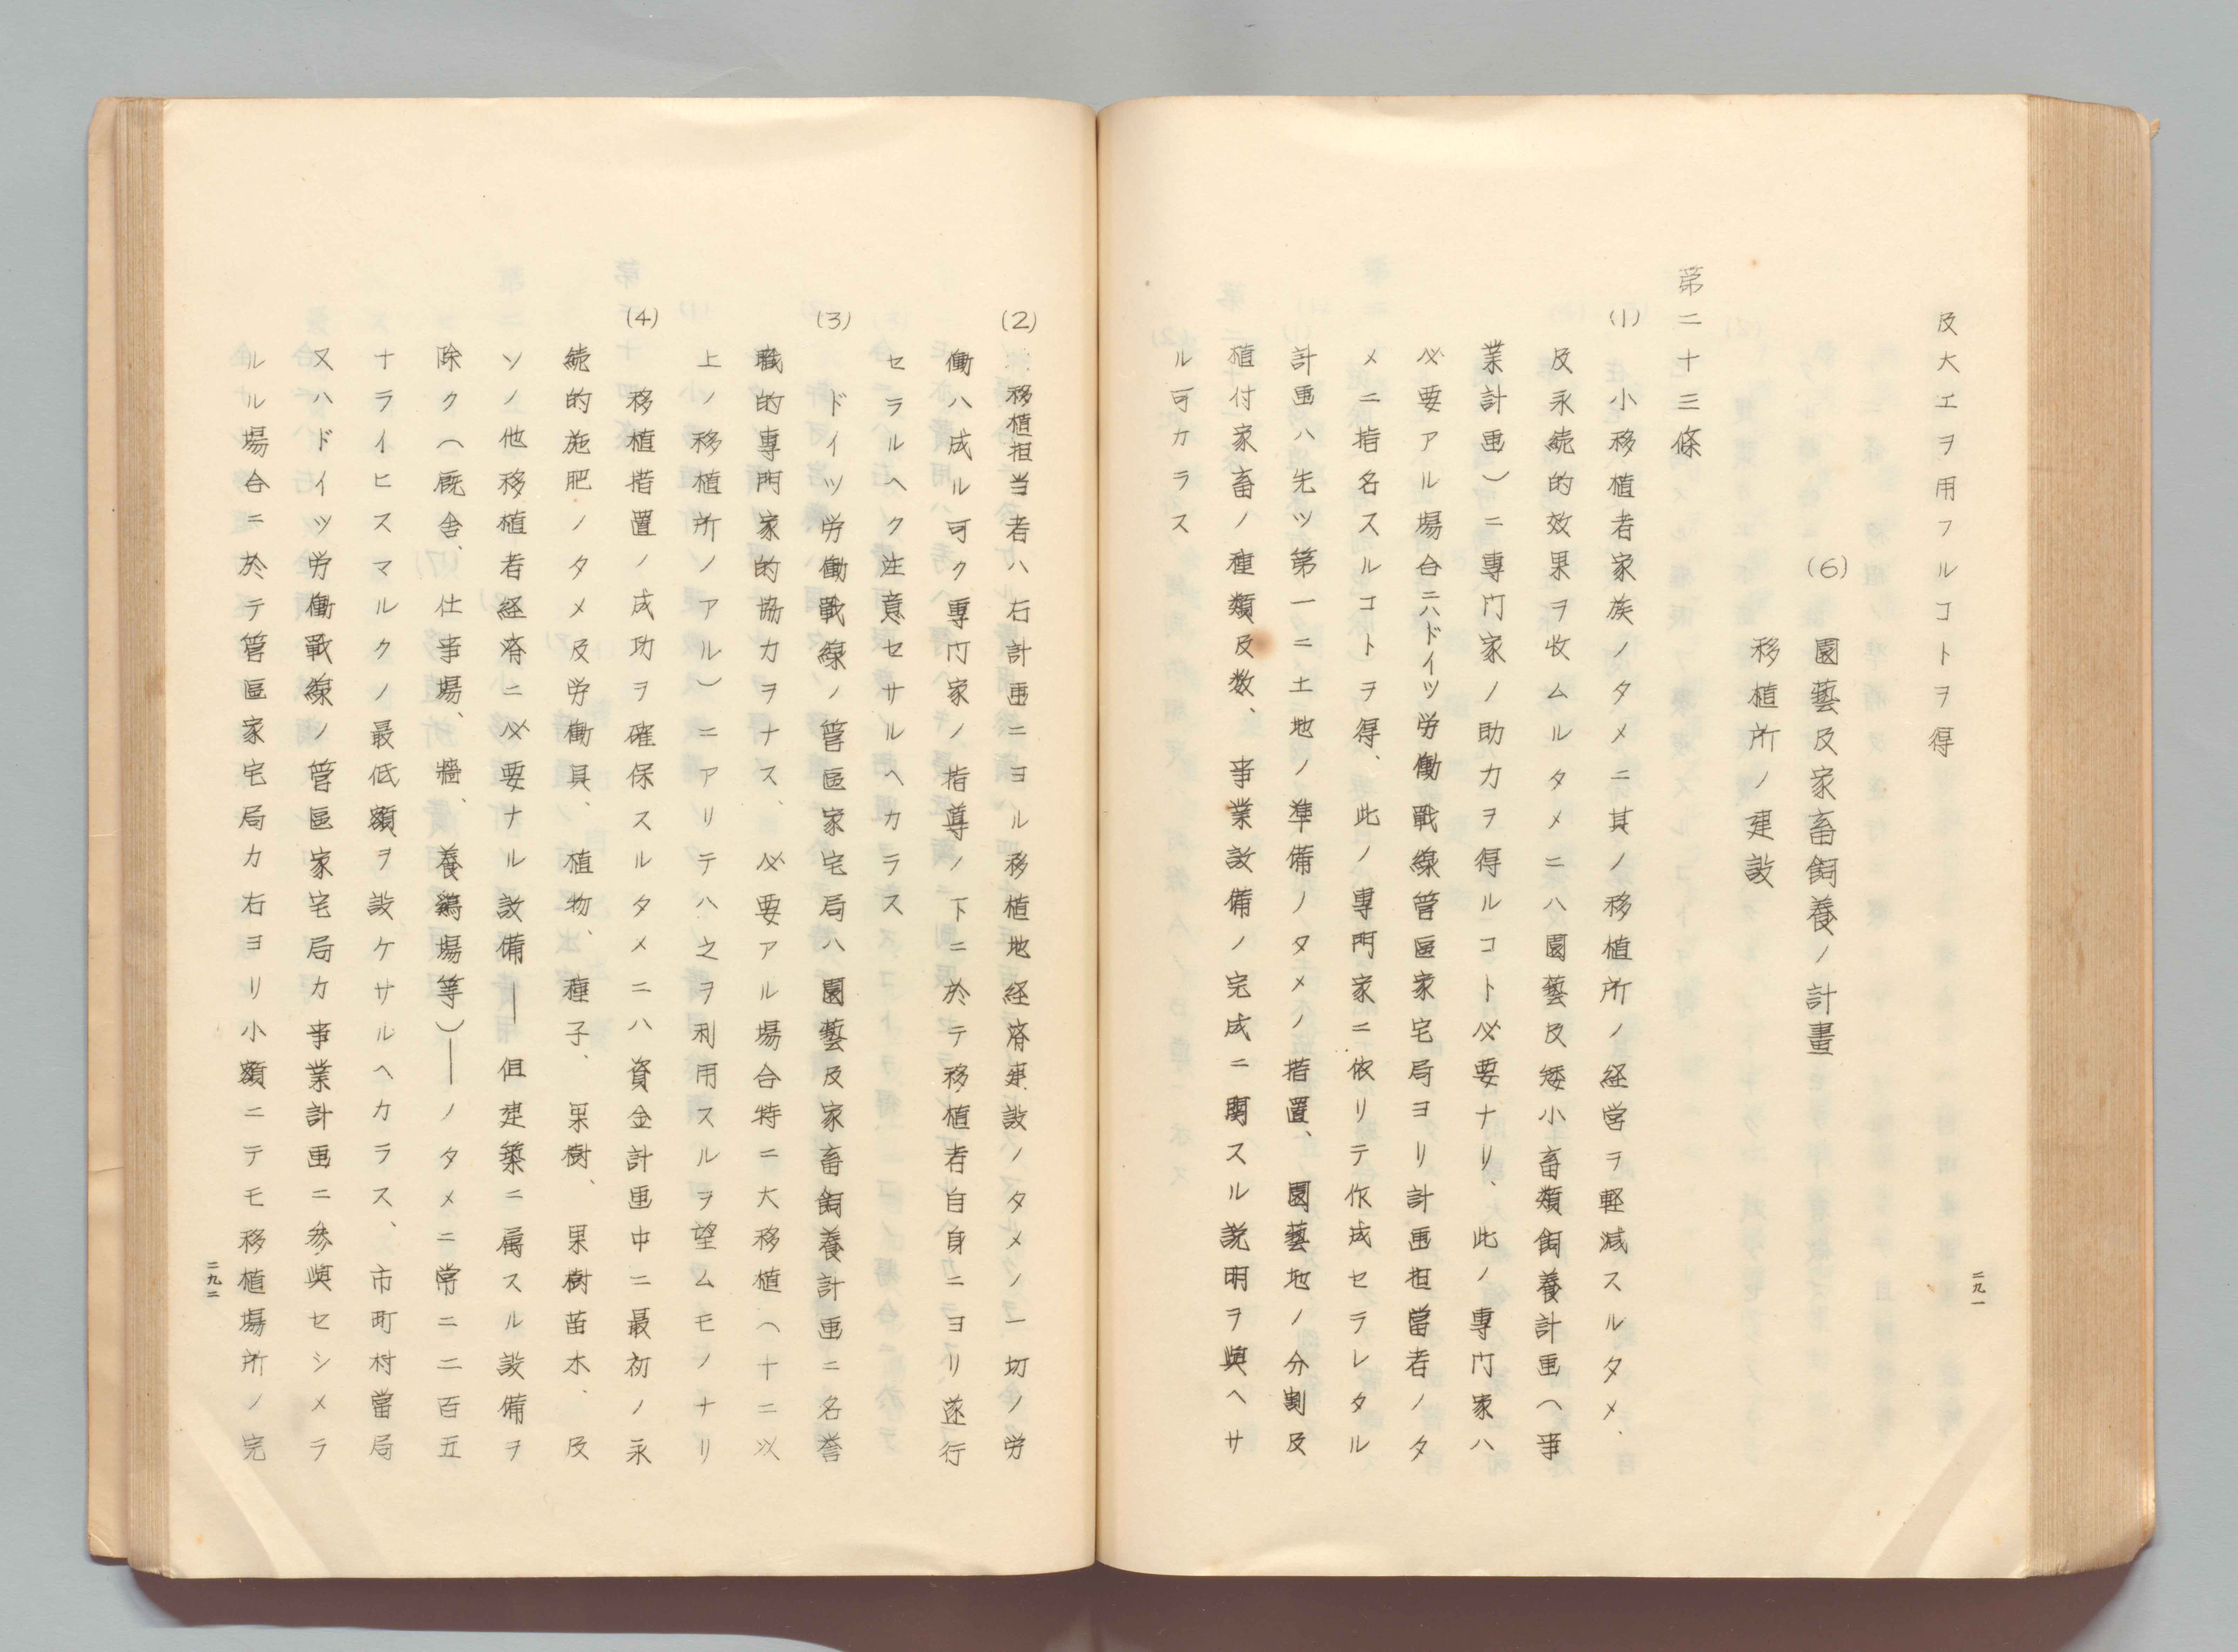 及大工ヲ用フルコトヲ得
(6) 園藝及家畜飼養ノ計畫
移植所ノ建設
第二十三條
(1) 小移植者家族ノタメニ其ノ移植所ノ経営ヲ軽減スルタメ、
及永続的效果ヲ收ムルタメニハ園藝及矮小畜類飼養計画(事
業計画)ニ専门家ノ助力ヲ得ルコト必要ナリ、此ノ専门家ハ
必要アル場合ニハドイツ労働戰線管區家宅局ヨリ計画担當者ノタ
メニ指名スルコトヲ得、此ノ専門家ニ依リテ作成セラレタル
計画ハ先ツ第一ニ土地ノ準備ノタメノ措置、園藝地ノ分割及
植付家畜ノ種類及数、事業設備ノ完成ニ関スル説明ヲ與ヘサ
ル可カラス
二九一
(2) 移植担当者ハ右計画ニヨル移植地経済建設ノタメノ一切ノ労
働ハ成ル可ク専门家ノ指導ノ下ニ於テ移植者自身ニヨリ遂行
セラルヘク注意セサルヘカラス
(3) ドイツ労働戰線ノ管區家宅局ハ園藝及家畜飼養計画ニ名誉
職的専門家的協力ヲナス、必要アル場合特ニ大移植(十二以
上ノ移植所ノアル)ニアリテハ之ヲ利用スルヲ望ムモノナリ
(4) 移植措置ノ成功ヲ確保スルタメニハ資金計画中ニ最初ノ永
続的施肥ノタメ及労働具、植物、種子、果樹、果樹苗木、及
ソノ他移植者経済ニ必要ナル設備―但建築ニ属スル設備ヲ
除ク(厩舎、仕事場、牆、養鶏場等)―ノタメニ常ニ二百五
ナライヒスマルクノ最低額ヲ設ケサルヘカラス、市町村當局
又ハドイツ労働戰線ノ管區家宅局カ事業計画ニ参與セシメラ
ルル場合ニ於テ管區家宅局カ右ヨリ小額ニテモ移植場所ノ完
二九二